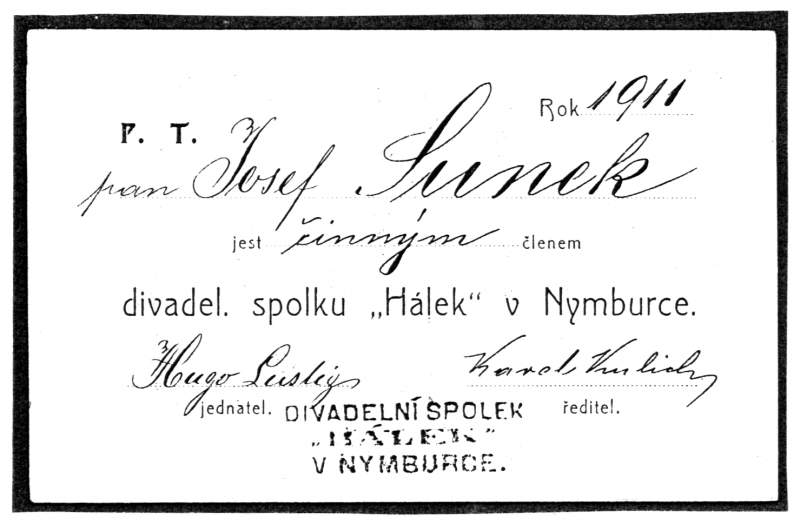 Rok 1911
P. T.
pan Josef Sunek
jest činným členem
divadel. spolku „Hálek“ v Nymburce.
Hugo Lustig Karel Kulich
jednatel. ředitel.
DIVADELNÍ SPOLEK
„HÁLEK”
V NYMBURCE.